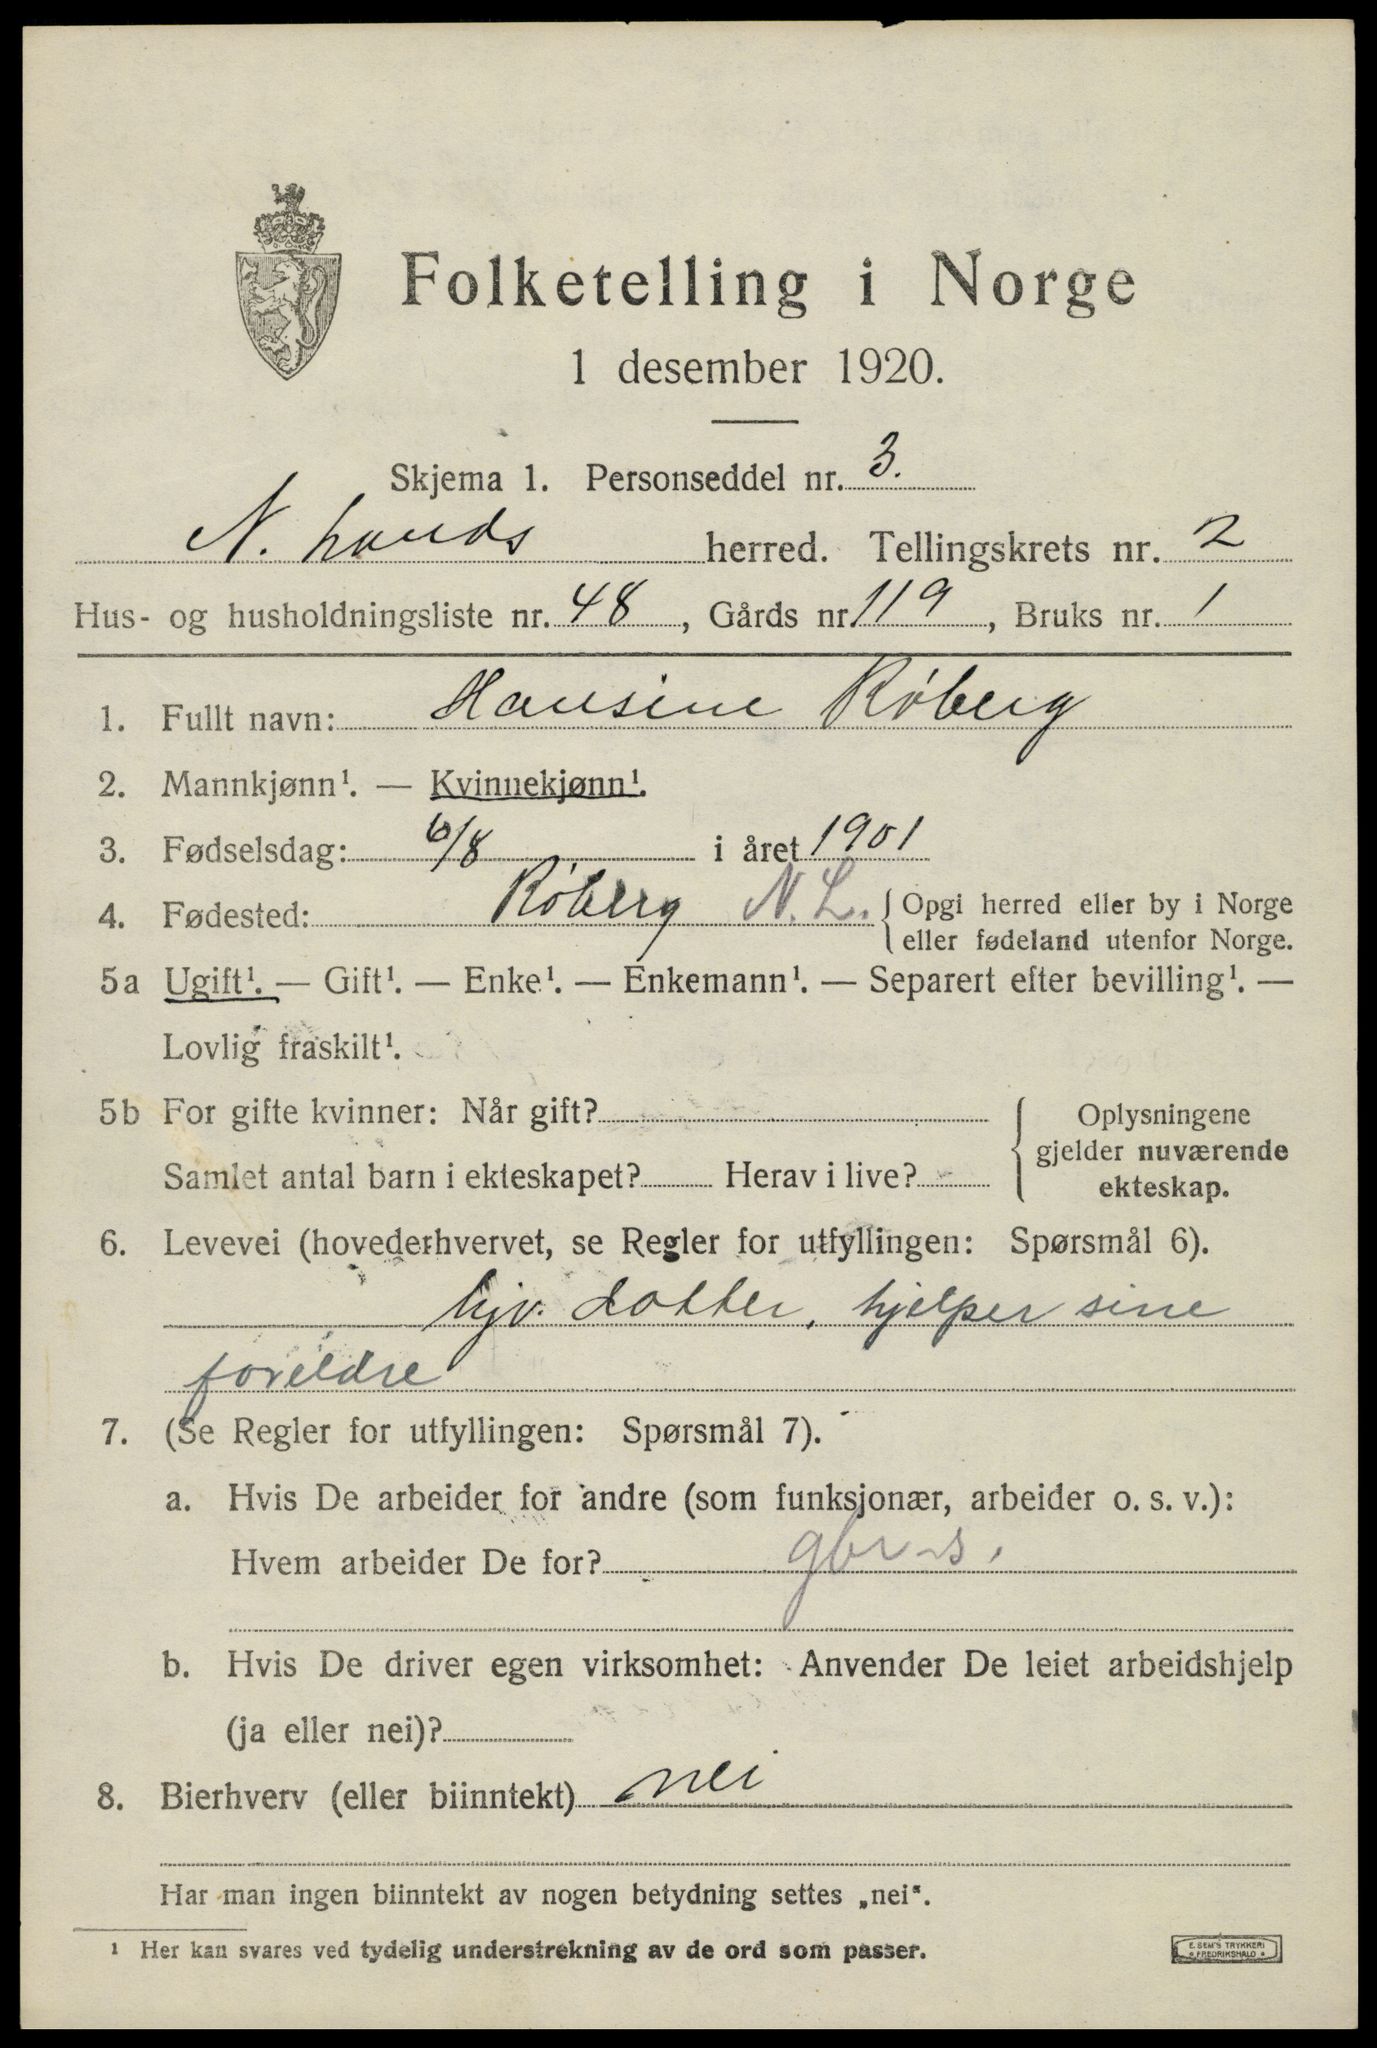 Folketelling i Norge
1 desember 1920.
Skjema 1. Personseddel nr. 3.
N. Lands herred. Tellingskrets nr. 2
Hus- og husholdningsliste nr. 48, Gårds nr. 119, Bruks nr. 1
1. Fullt navn: Hansine Røberg
2. Mannkjønn¹. — Kvinnekjønn¹.
3. Fødselsdag: 6/8 i året 1901
4. Fødested: Røberg N. L. { Opgi herred eller by i Norge
eller fødeland utenfor Norge.
5a Ugift¹. — Gift¹. — Enke¹. — Enkemann¹. — Separert efter bevilling¹. —
Lovlig fraskilt¹.
5b For gifte kvinner: Når gift?
Samlet antal barn i ekteskapet? Herav i live?
{ Oplysningene
gjelder nuværende
ekteskap.
6. Levevei (hovederhvervet, se Regler for utfyllingen: Spørsmål 6).
hjv. dotter, hjelper sine
foreldre
7. (Se Regler for utfyllingen: Spørsmål 7).
a. Hvis De arbeider for andre (som funksjonær, arbeider o. s. v.):
Hvem arbeider De for? gbr-s.
b. Hvis De driver egen virksomhet: Anvender De leiet arbeidshjelp
(ja eller nei)?
8. Bierhverv (eller biinntekt) nei
Har man ingen biinntekt av nogen betydning settes „nei“.
¹ Her kan svares ved tydelig understrekning av de ord som passer.
E. SEM'S TRYKKERI
* FREDRIKSHALD *